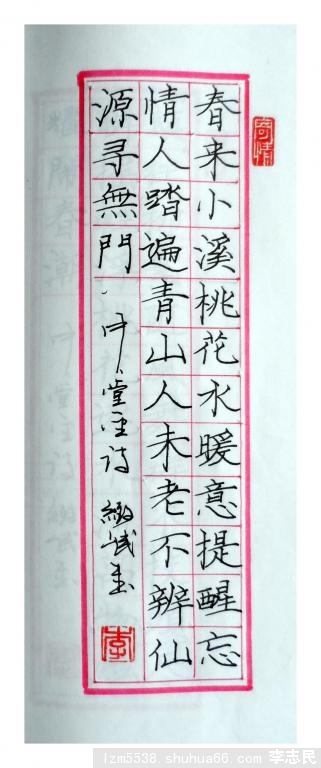 春来小溪桃花水暖意提醒忘
情人踏遍青山人未老不辨仙
源寻無門
寄情
李
lzm5538.shuhua66.com 李志民